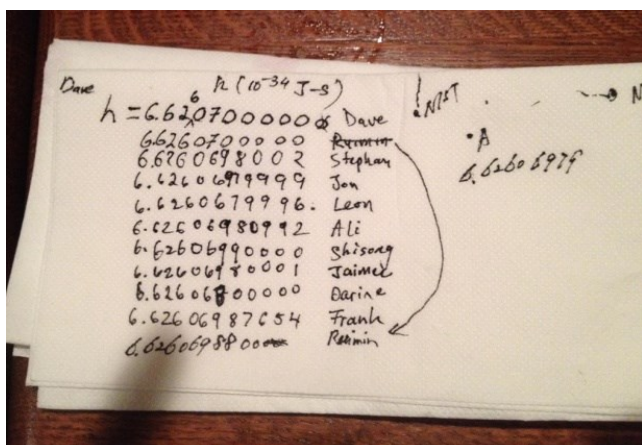 Dave
h (10⁻³⁴ J-S)
h = 6.6260700000 Dave
6.6260700000 Ruimin
6.6260698002 Stephan
6.6260699999 Jon
6.6260679996. Leon
6.62606980992 Ali
6.62606990000 Shisong
6.62606980001 Jaimee
6.6260680000 Darine
6.62606987654 Frank
6.6260698800 Ruimin
NIST
A
6.62606979